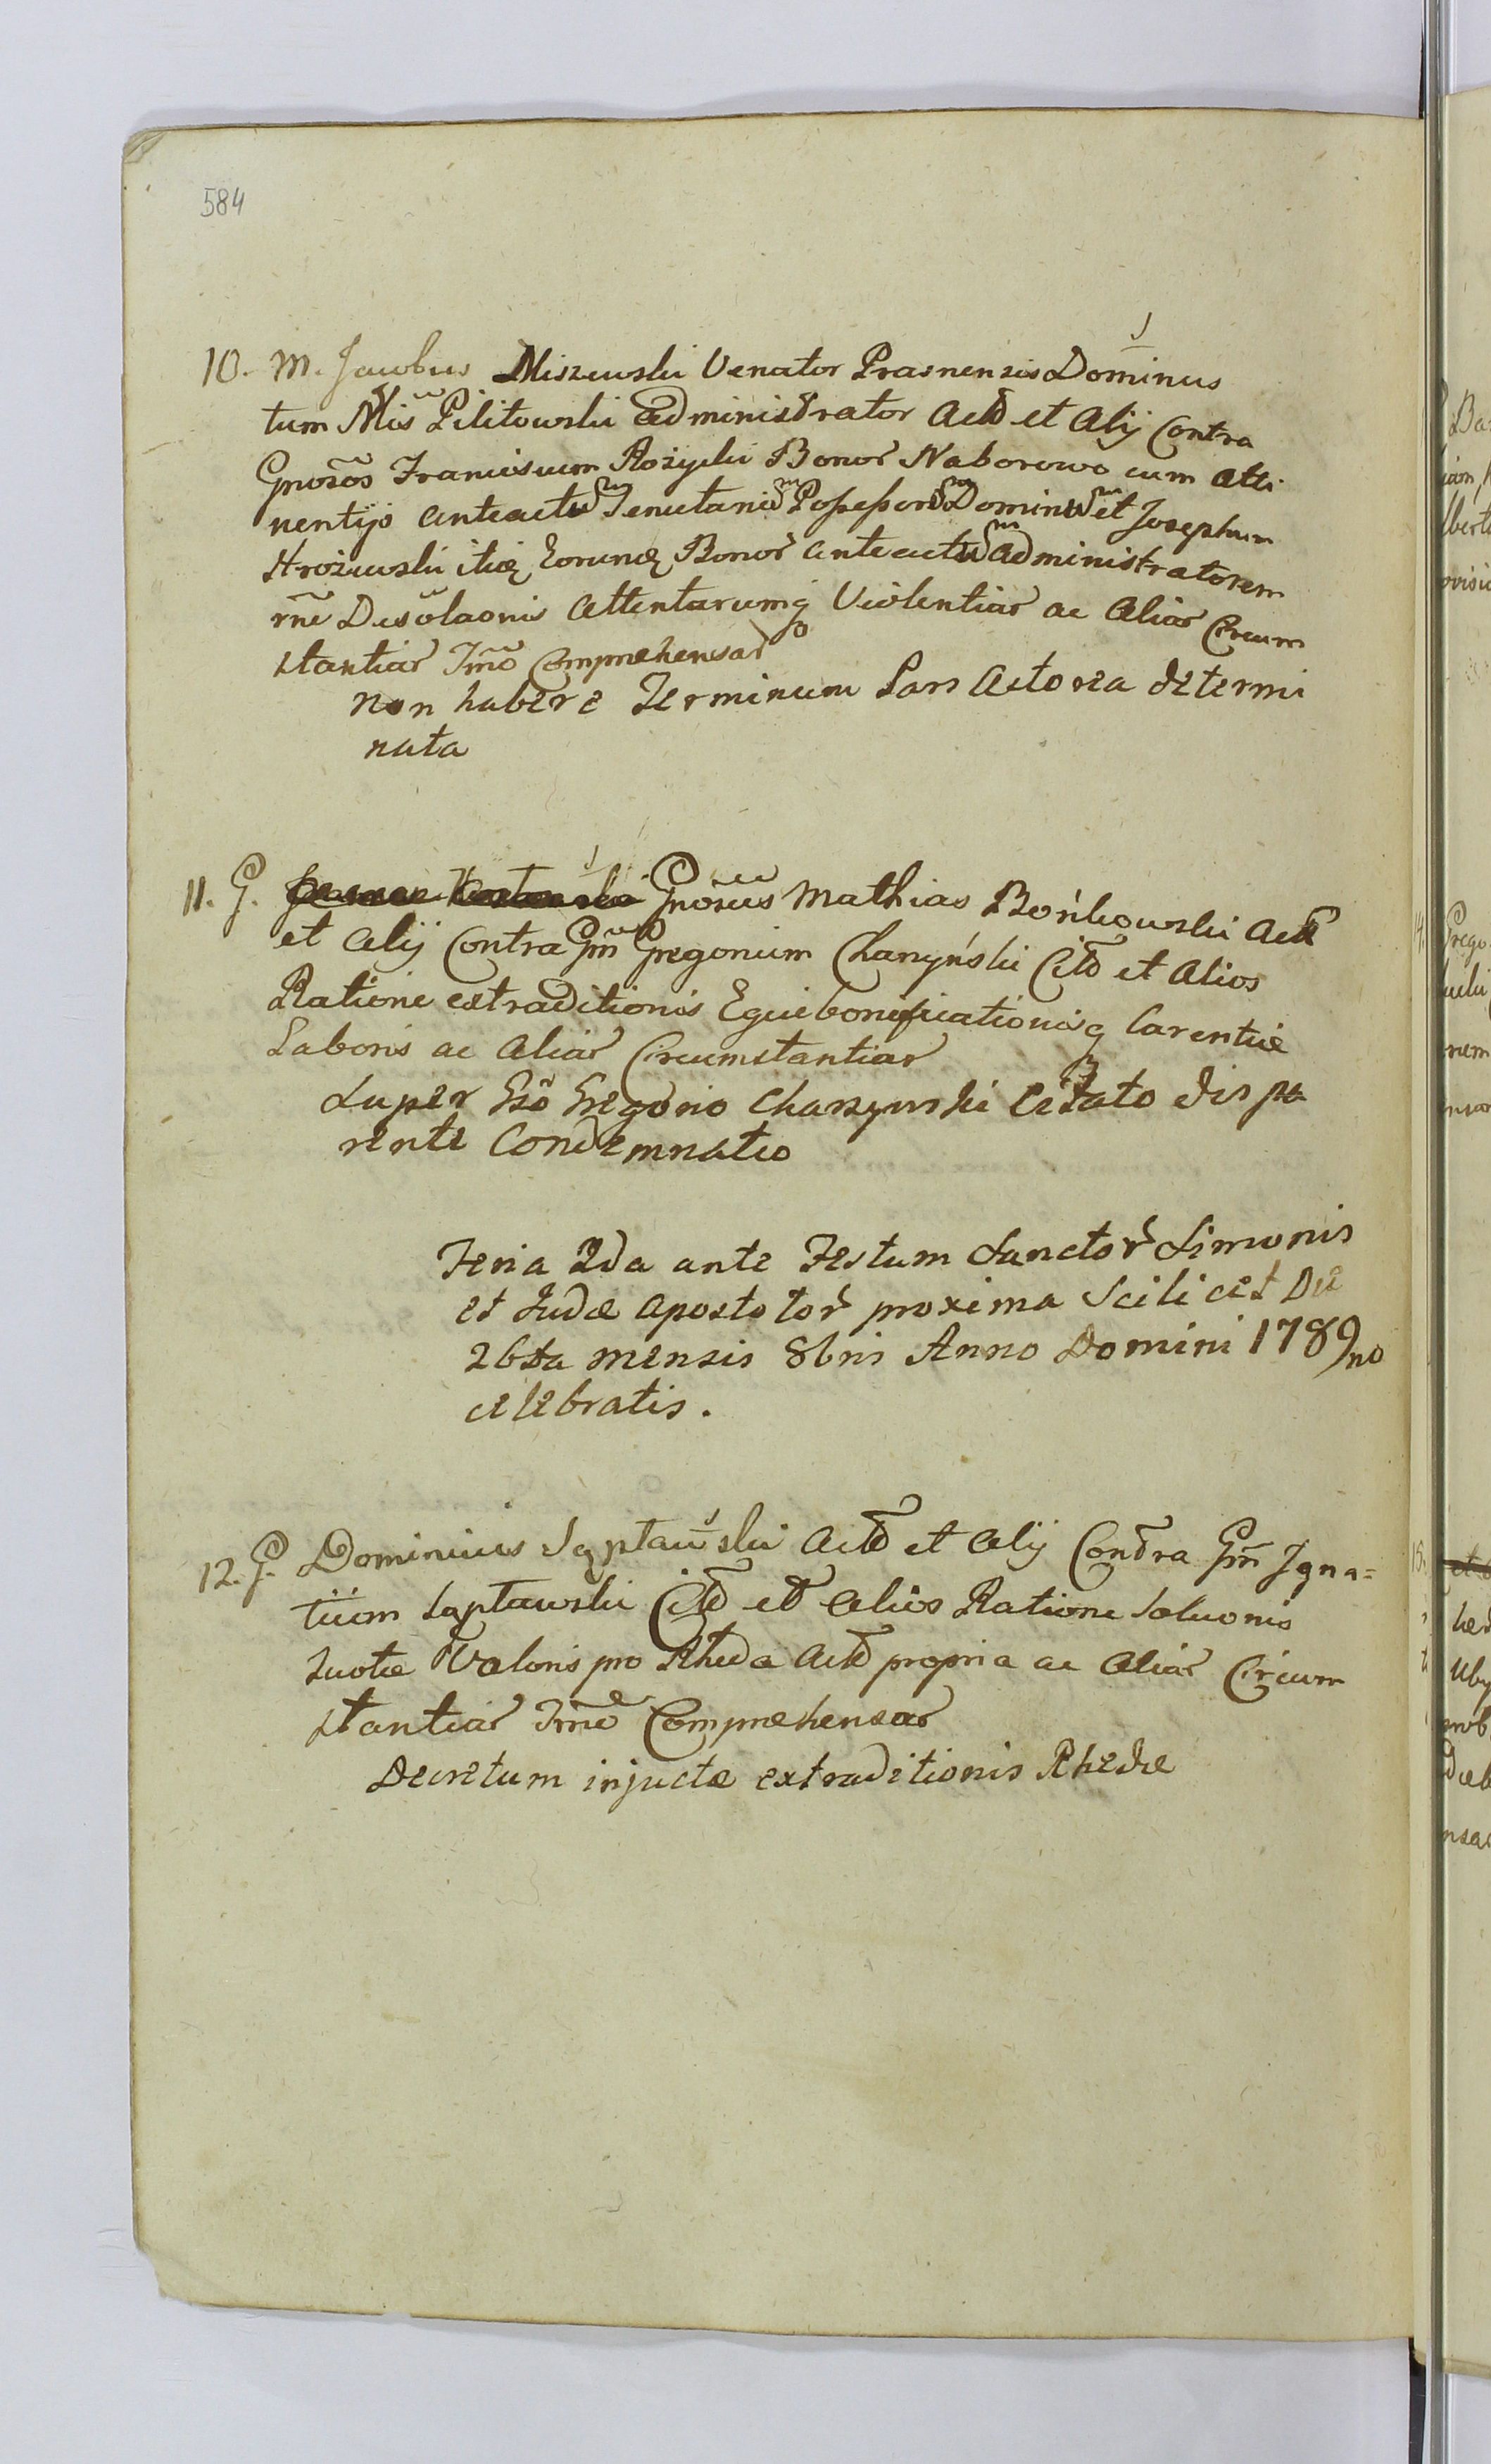 584
10. M. Jacobus Miszewski Venator Prasnensis Dominus
tum Mis Pilitowski administrator Act et Alij Contra
Gnosos Franciscum Rożycki Bonor Naborowo cum Atti
nentijs anteactu Tenutariu Possessore Dominu et Josephum
Hrożewski itiq Eorunq Bonor anteactu administratorem
rne Desolaonis Attentarumq Violentiar ac Aliar Circum
stantiar Tmo Comprehensar
Non habere Terminum Pars Actorea determi
nata
11. G. Gnosus Mathias Bońkowski Act
et Alij Contra Gm Gregorium Charzyński Citt et Alios
Ratione extraditionis Equi bonificationisq Carentiæ
Laboris ac Aliar Circumstantiar
Super Gso Gregorio Charzynski Citato dispa
rente Condemnatio
Feria 2da ante Festum Sanctor Simonis
et Judæ Apostolor proxima Scilicet Die
26ta mensis 8bris Anno Domini 1789no
celebratis.
12. G. Dominicus Act et Alij Contra Gm Igna=
tium Citt et Alios Ratione Soluonis
Quotæ Valoris pro Rheda Act propria ac Aliar Circum
stantiar Tmo Comprehensar
Decretum injuctæ extraditionis Rhedæ